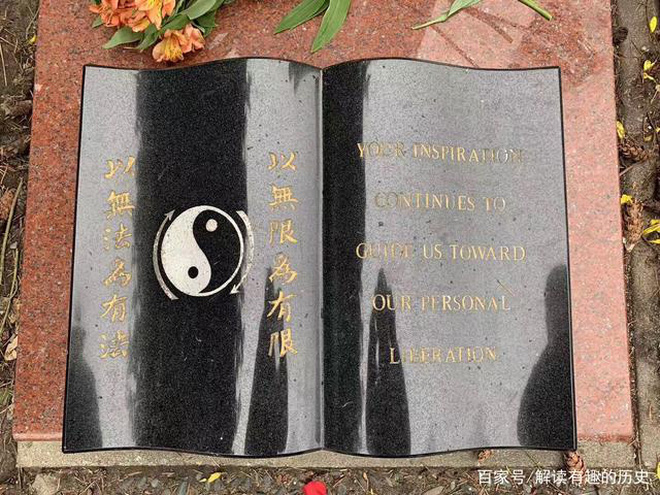 以無法為有法
以無限為有限
YOUR INSPIRATION
CONTINUES TO
GUIDE US TOWARD
OUR PERSONAL
LIBERATION
百家号/解读有趣的历史